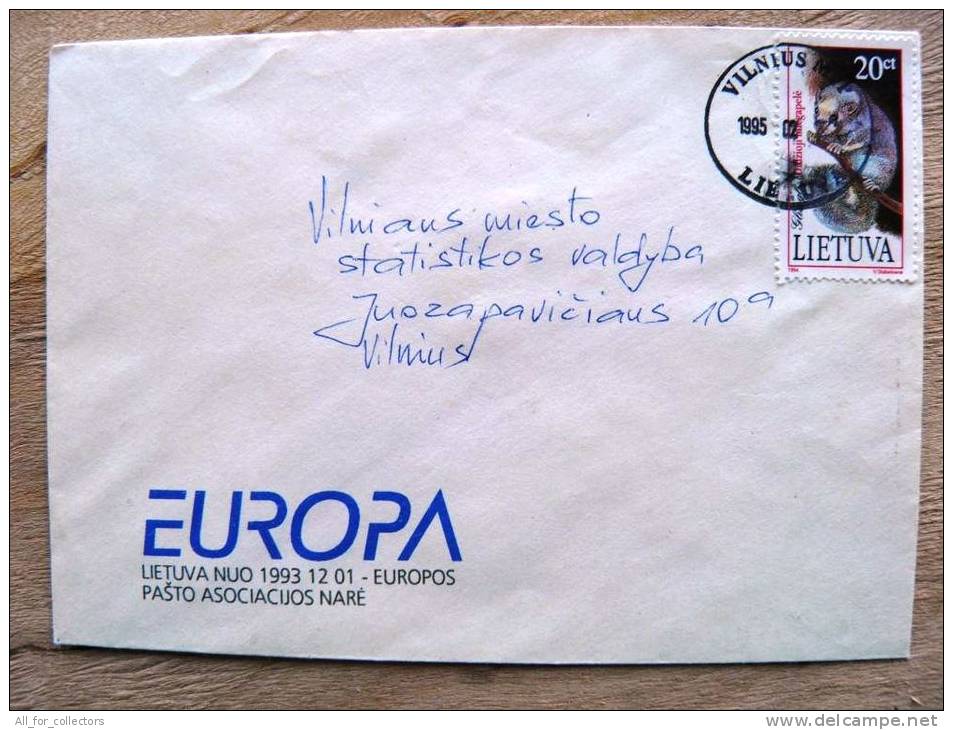 VILNIUS
1995 02
LIETUVA
20ct
džioji miegapelė
LIETUVA
1994
Vilniaus miesto
statistikos valdyba
Juozapavičiaus 10a
Vilnius
EUROPA
LIETUVA NUO 1993 12 01 - EUROPOS
PAŠTO ASOCIACIJOS NARĖ
All_for_collectors
http://www.delcampe.net